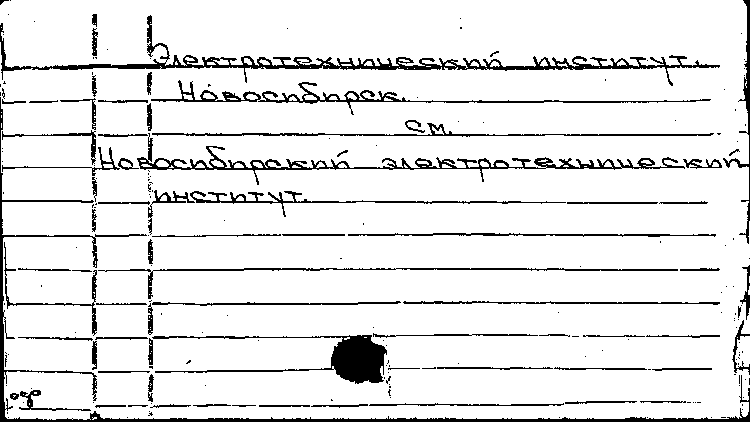 Электротехнический институт.
Новосибирск.
см.
Новосибирский электротехнический
институт.